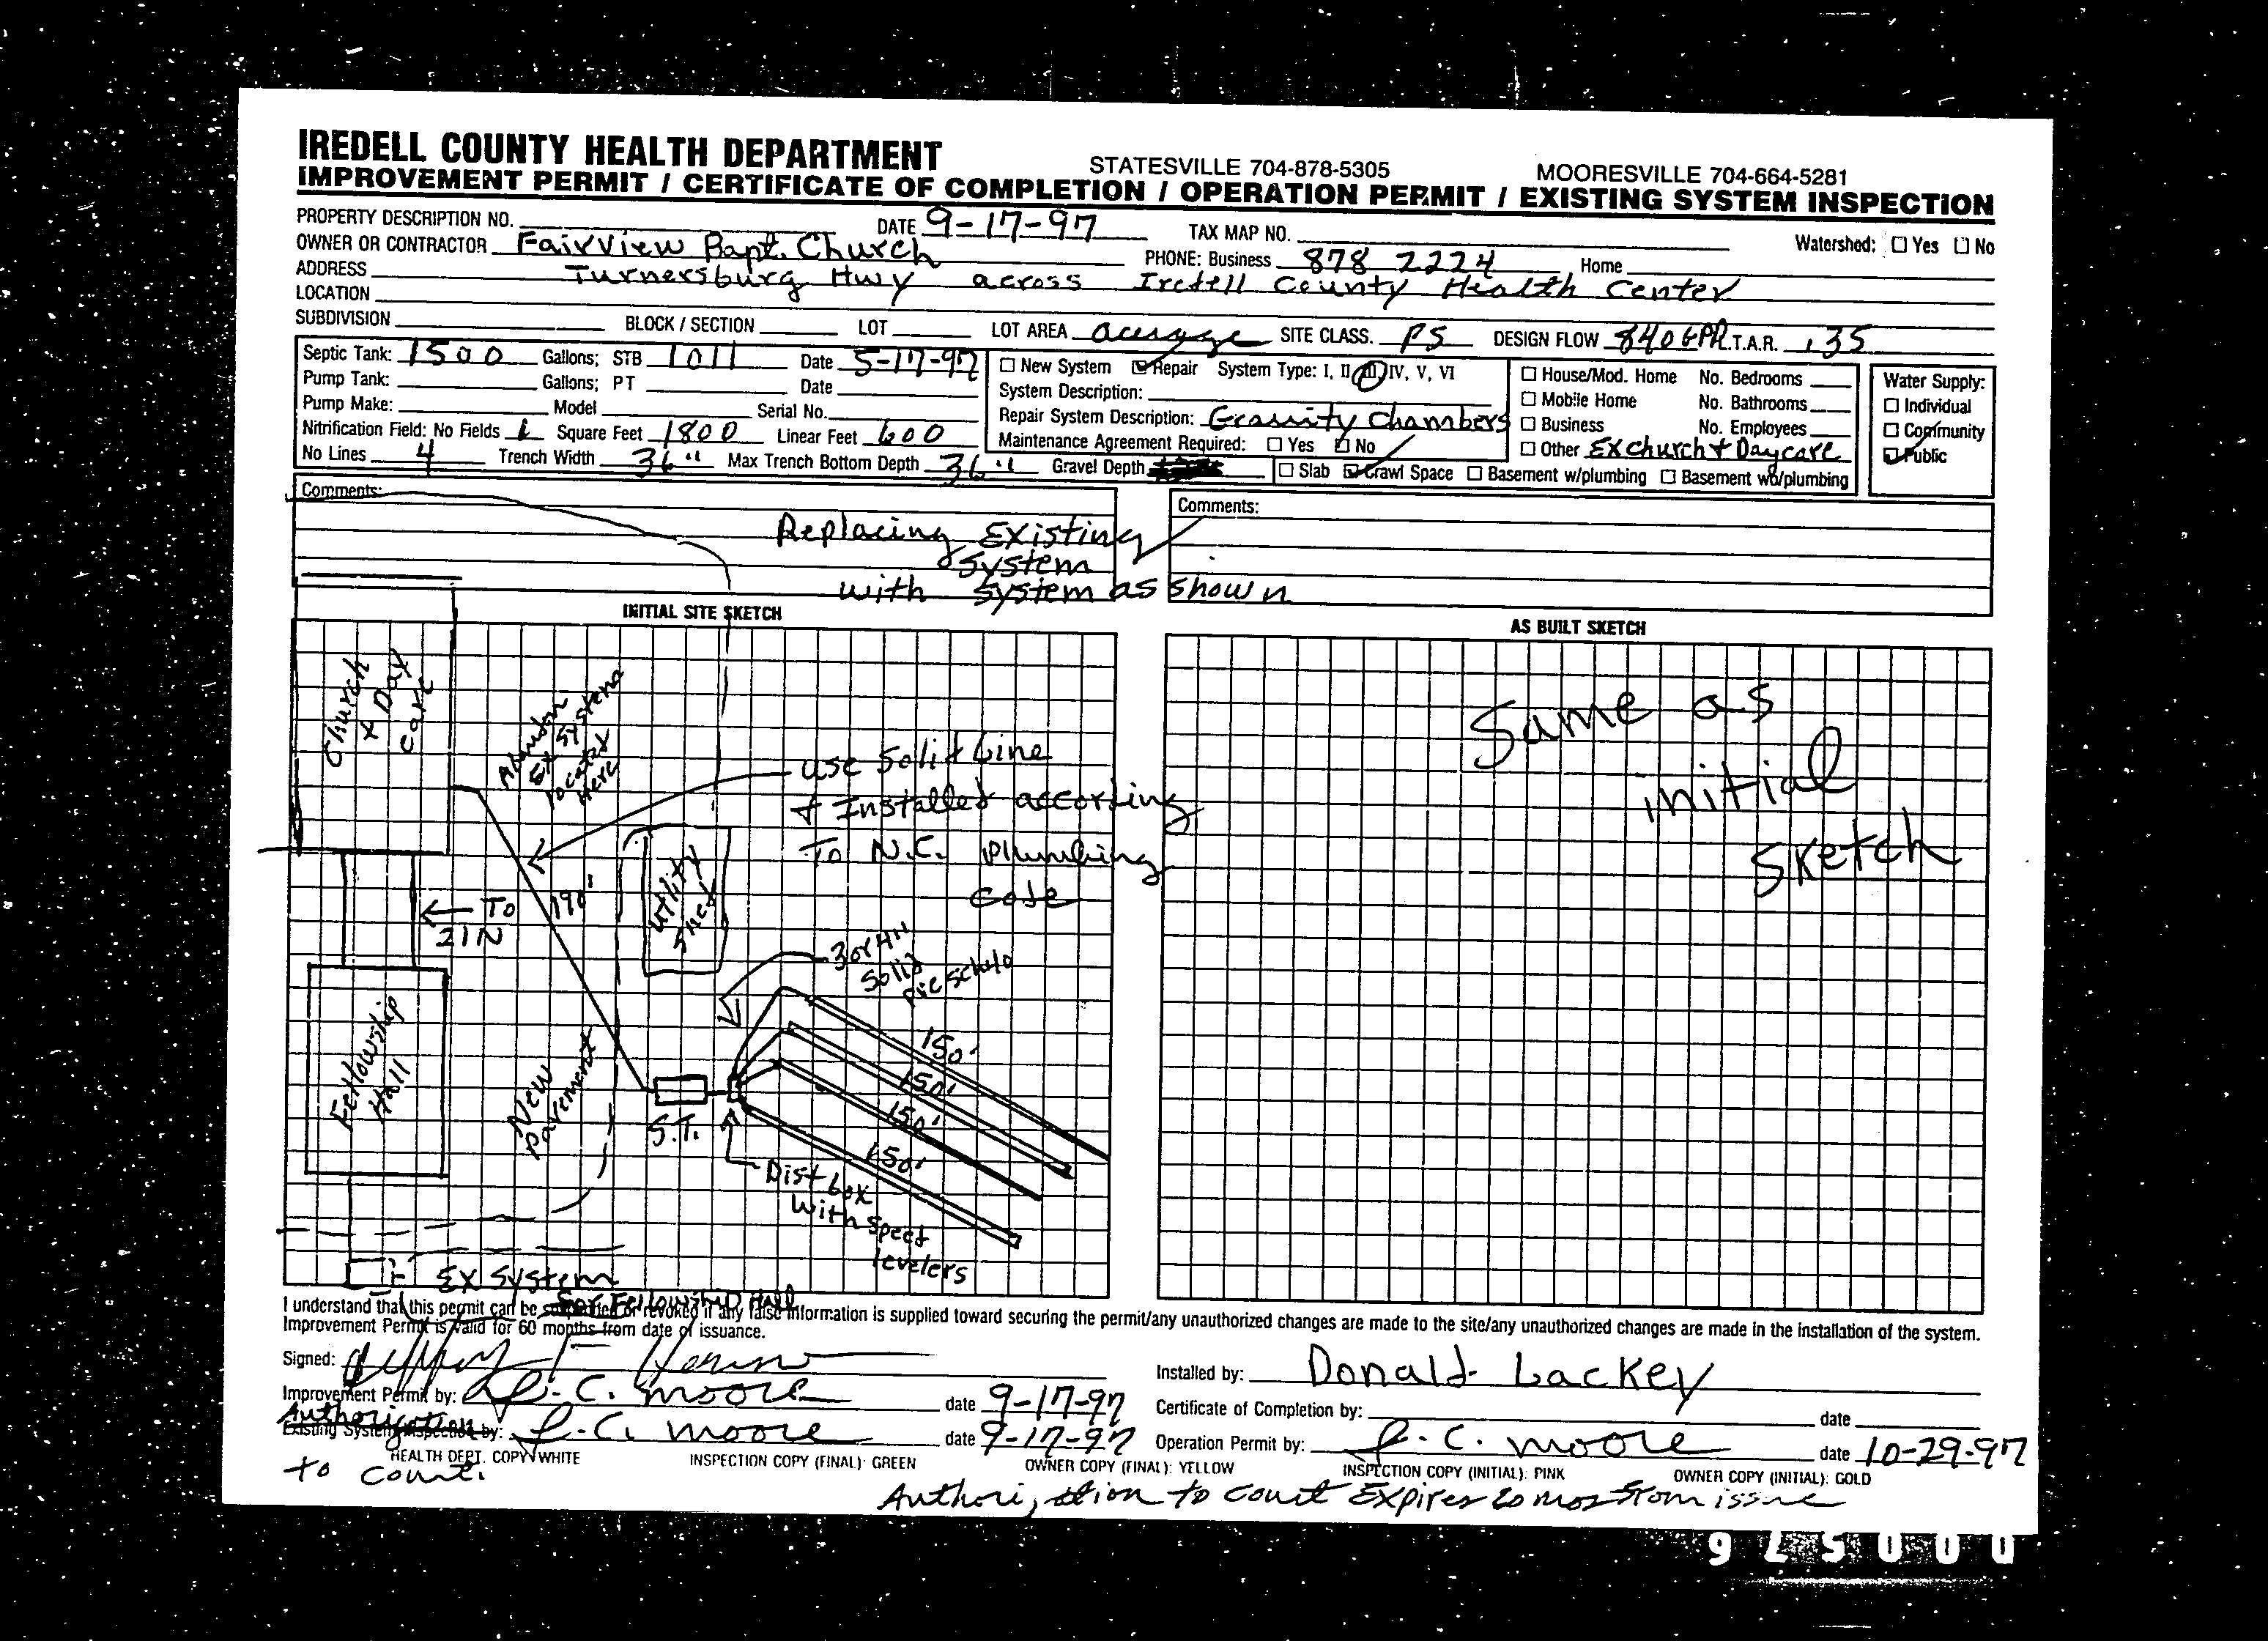 IREDELL COUNTY HEALTH DEPARTMENT STATESVILLE 704-878-5305 MOORESVILLE 704-664-5281
IMPROVEMENT PERMIT / CERTIFICATE OF COMPLETION / OPERATION PERMIT / EXISTING SYSTEM INSPECTION
PROPERTY DESCRIPTION NO. DATE 9-17-97 TAX MAP NO. Watershed: Yes No
OWNER OR CONTRACTOR Fairview Bapt. Church PHONE: Business 878 2224 Home
ADDRESS Turnersburg Hwy across Iredell County Health Center
LOCATION
SUBDIVISION BLOCK / SECTION LOT LOT AREA acerage SITE CLASS. PS DESIGN FLOW 840 GPD L.T.A.R. .35
Septic Tank: 1500 Gallons; STB 1011 Date 5-17-97 New System Repair System Type: I, II, III, IV, V, VI House/Mod. Home No. Bedrooms Water Supply:
Pump Tank: Gallons; PT Date System Description: Mobile Home No. Bathrooms Individual
Pump Make: Model Serial No. Repair System Description: Gravity Chambers Business No. Employees Community
Nitrification Field: No Fields 1 Square Feet 1800 Linear Feet 600 Maintenance Agreement Required: Yes No Other Ex Church + Daycare Public
No Lines 4 Trench Width 36" Max Trench Bottom Depth 36" Gravel Depth Slab Crawl Space Basement w/plumbing Basement wo/plumbing
Comments: Comments:
Replacing Existing
System
with System as shown
INITIAL SITE SKETCH AS BUILT SKETCH
Church
+ Day
care
Abandon
Ex System
located
Here
use Solid Line
+ Installed according
To N.C. Plumbing
Code
Same as
initial
sketch
Utility
Shed
To
21N
190'
3 or 4"
Solid
pvc Sch40
Fellowship
Hall
New
Pavement
150'
150'
150'
150'
S.T.
Dist box
with speed
levelers
Ex System
For Fellowship Hall
I understand that this permit can be suspended or revoked if any false information is supplied toward securing the permit/any unauthorized changes are made to the site/any unauthorized changes are made in the installation of the system.
Improvement Permit is valid for 60 months from date of issuance.
Signed: Installed by: Donald Lackey
Improvement Permit by: R.C. Moore date 9-17-97 Certificate of Completion by: date
Authorization
Existing System Inspection by: R.C. Moore date 9-17-97 Operation Permit by: R.C. Moore date 10-29-97
HEALTH DEPT. COPY WHITE INSPECTION COPY (FINAL): GREEN OWNER COPY (FINAL): YELLOW INSPECTION COPY (INITIAL): PINK OWNER COPY (INITIAL): GOLD
to const.
Authorization to const Expires 60 mos from issue